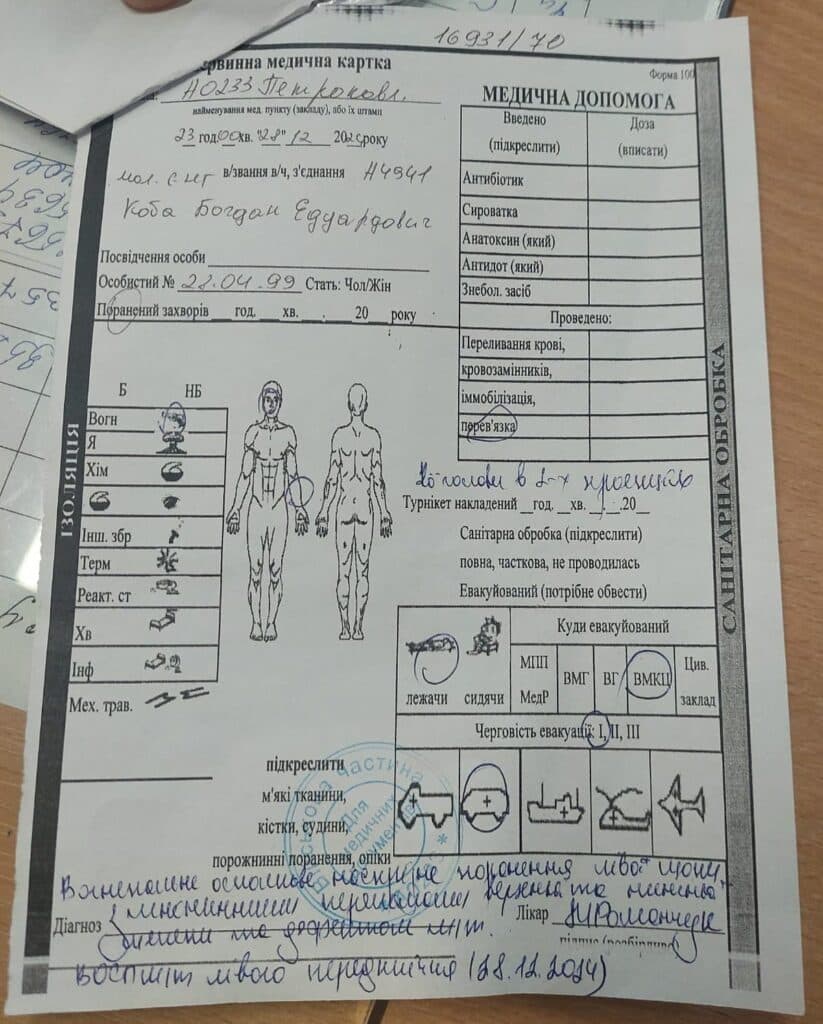 16931/70
ервинна медична картка
Форма 100
А0233 Петропавл.
найменування мед. пункту (закладу), або їх штамп
23 год 00 хв. "28" 12 202 року
мол. с-нт в/звання в/ч, з'єднання А4941
Коба Богдан Едуардович
Посвідчення особи
Особистий № 28.04.99 Стать: Чол/Жін
Поранений захворів ___ год. ___ хв. ___ . ___ 20 ___ року
МЕДИЧНА ДОПОМОГА
Введено (підкреслити) Доза (вписати)
Антибіотик
Сироватка
Анатоксин (який)
Антидот (який)
Знебол. засіб
Проведено:
Переливання крові,
кровозамінників,
іммобілізація,
перев'язка
голови в 2-х проекціях
Турнікет накладений __год. __хв. __.__.20__
Санітарна обробка (підкреслити)
повна, часткова, не проводилась
Евакуйований (потрібне обвести)
ІЗОЛЯЦІЯ
Б НБ
Вогн
Я
Хім
Інш. збр
Терм
Реакт. ст
Хв
Інф
Мех. трав.
САНІТАРНА ОБРОБКА
Куди евакуйований
лежачи сидячи
МПП МедР
ВМГ
ВГ
ВМКЦ
Цив. заклад
Черговість евакуації: І, ІІ, ІІІ
підкреслити
м'які тканини,
кістки, судини,
порожнинні поранення, опіки
військова частина
Для медичних документів
Вогнепальне осколкове наскрізне поранення лівої щоки
переломом верхньої та нижньої
Діагноз щелепи та дефектом м/т.
Лікар Романчук
підпис (розбірливо)
лівого передпліччя (28.12.2024)